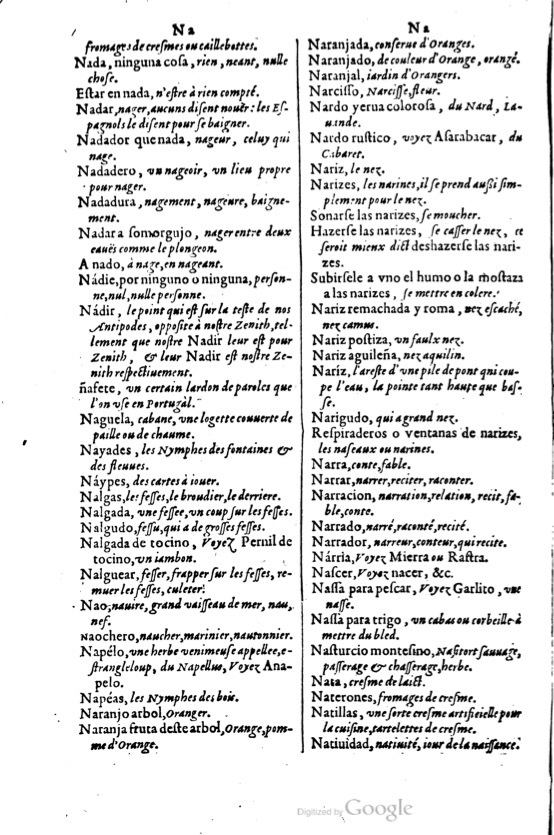 Na
fromages de cresmes ou caillebottes.
Nada, ninguna cosa, rien, neant, nulle
chose.
Estar en nada, n'estre à rien compté.
Nadar, nager, aucuns disent nouër: les Es-
pagnols le disent pour se baigner.
Nadador que nada, nageur, celuy qui
nage.
Nadadero, vn nageoir, vn lieu propre
pour nager.
Nadadura, nagement, nageure, baigne-
ment.
Nadar a somorgujo, nager entre deux
eauës comme le plongeon.
A nado, à nage, en nageant.
Nádie, por ninguno o ninguna, person-
ne, nul, nulle personne.
Nádir, le point qui est sur la teste de nos
Antipodes, opposite à nostre Zenith, tel-
lement que nostre Nadir leur est pour
Zenith, & leur Nadir est nostre Ze-
nith respectiuement.
ñafete, vn certain lardon de paroles que
l'on vse en Portugàl.
Naguela, cabane, vne logette couuerte de
paille ou de chaume.
Nayades, les Nymphes des fontaines &
des fleuues.
Náypes, des cartes à iouer.
Nalgas, les fesses, le broudier, le derriere.
Nalgada, vne fessee, vn coup sur les fesses.
Nalgudo, fessu, qui a de grosses fesses.
Nalgada de tocino, Voyez Pernil de
tocino, vn iambon.
Nalguear, fesser, frapper sur les fesses, re-
muer les fesses, culeter.
Nao, nauire, grand vaisseau de mer, nau,
nef.
Naochero, naucher, marinier, nautonnier.
Napélo, vne herbe venimeuse appellee, e-
strangleloup, du Napellus, Voyez Ana-
pelo.
Napéas, les Nymphes des bois.
Naranjo arbol, Oranger.
Naranja fruta deste arbol, Orange, pom-
me d'Orange.
Na
Naranjada, conserue d'Oranges.
Naranjado, de couleur d'Orange, orangé.
Naranjal, iardin d'Orangers.
Narcisso, Narcisse, fleur.
Nardo yerua colorosa, du Nard, La-
uande.
Nardo rustico, voyez Asarabacar, du
Cabaret.
Nariz, le nez.
Narizes, les narines, il se prend aussi sim-
plement pour le nez.
Sonarse las narizes, se moucher.
Hazerse las narizes, se casser le nez, ce
seroit mieux dict deshazerse las nari-
zes.
Subirsele a vno el humo o la mostaza
a las narizes, se mettre en colere.
Nariz remachada y roma, nez escaché,
nez camus.
Nariz postiza, vn faulx nez.
Nariz aguileña, nez aquilin.
Nariz, l'areste d'vne pile de pont qui cou-
pe l'eau, la pointe tant haute que bas-
se.
Narigudo, qui a grand nez.
Respiraderos o ventanas de narizes,
les naseaux ou narines.
Narra, conte, fable.
Narrar, narrer, reciter, raconter.
Narracion, narration, relation, recit, fa-
ble, conte.
Narrado, narré, raconté, recité.
Narrador, narreur, conteur, qui recite.
Nárria, Voyez Mierra ou Rastra.
Nascer, Voyez nacer, &c.
Nassa para pescar, Voyez Garlito, vne
nasse.
Nassa para trigo, vn cabas ou corbeille à
mettre du bled.
Nasturcio montesino, Nasitort sauuage,
passerage & chasserage, herbe.
Nata, cresme de laict.
Naterones, fromages de cresme.
Natillas, vne sorte cresme artificielle pour
la cuisine, tartelettes de cresme.
Natiuidad, natiuité, iour de la naissance.
Digitized by Google